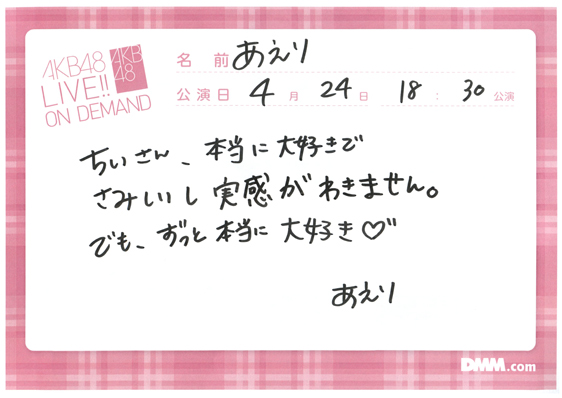 AKB48
LIVE!!
ON DEMAND
AKB
48
名前 あえり
公演日 4月 24日 18:30公演
ちいさん、本当に大好きで
さみしいし実感がわきません。
でも、ずっと本当に大好き♡"
あえり
DMM.com